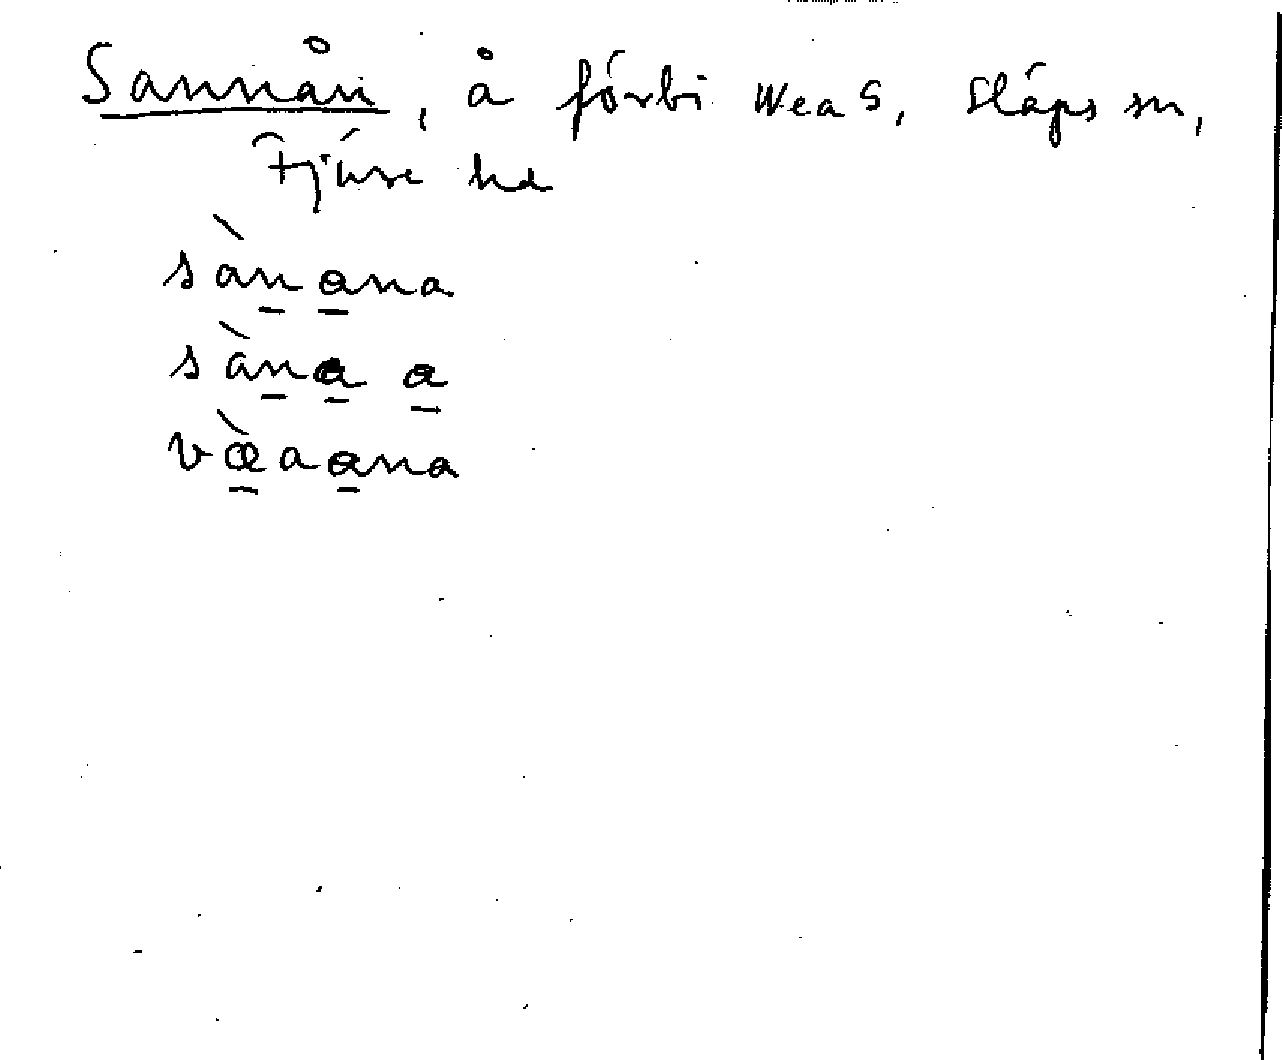 Sannån, å förbi Weas, Släps sn,
Fjäre hd
sànana
sàna a
vœ̀aana